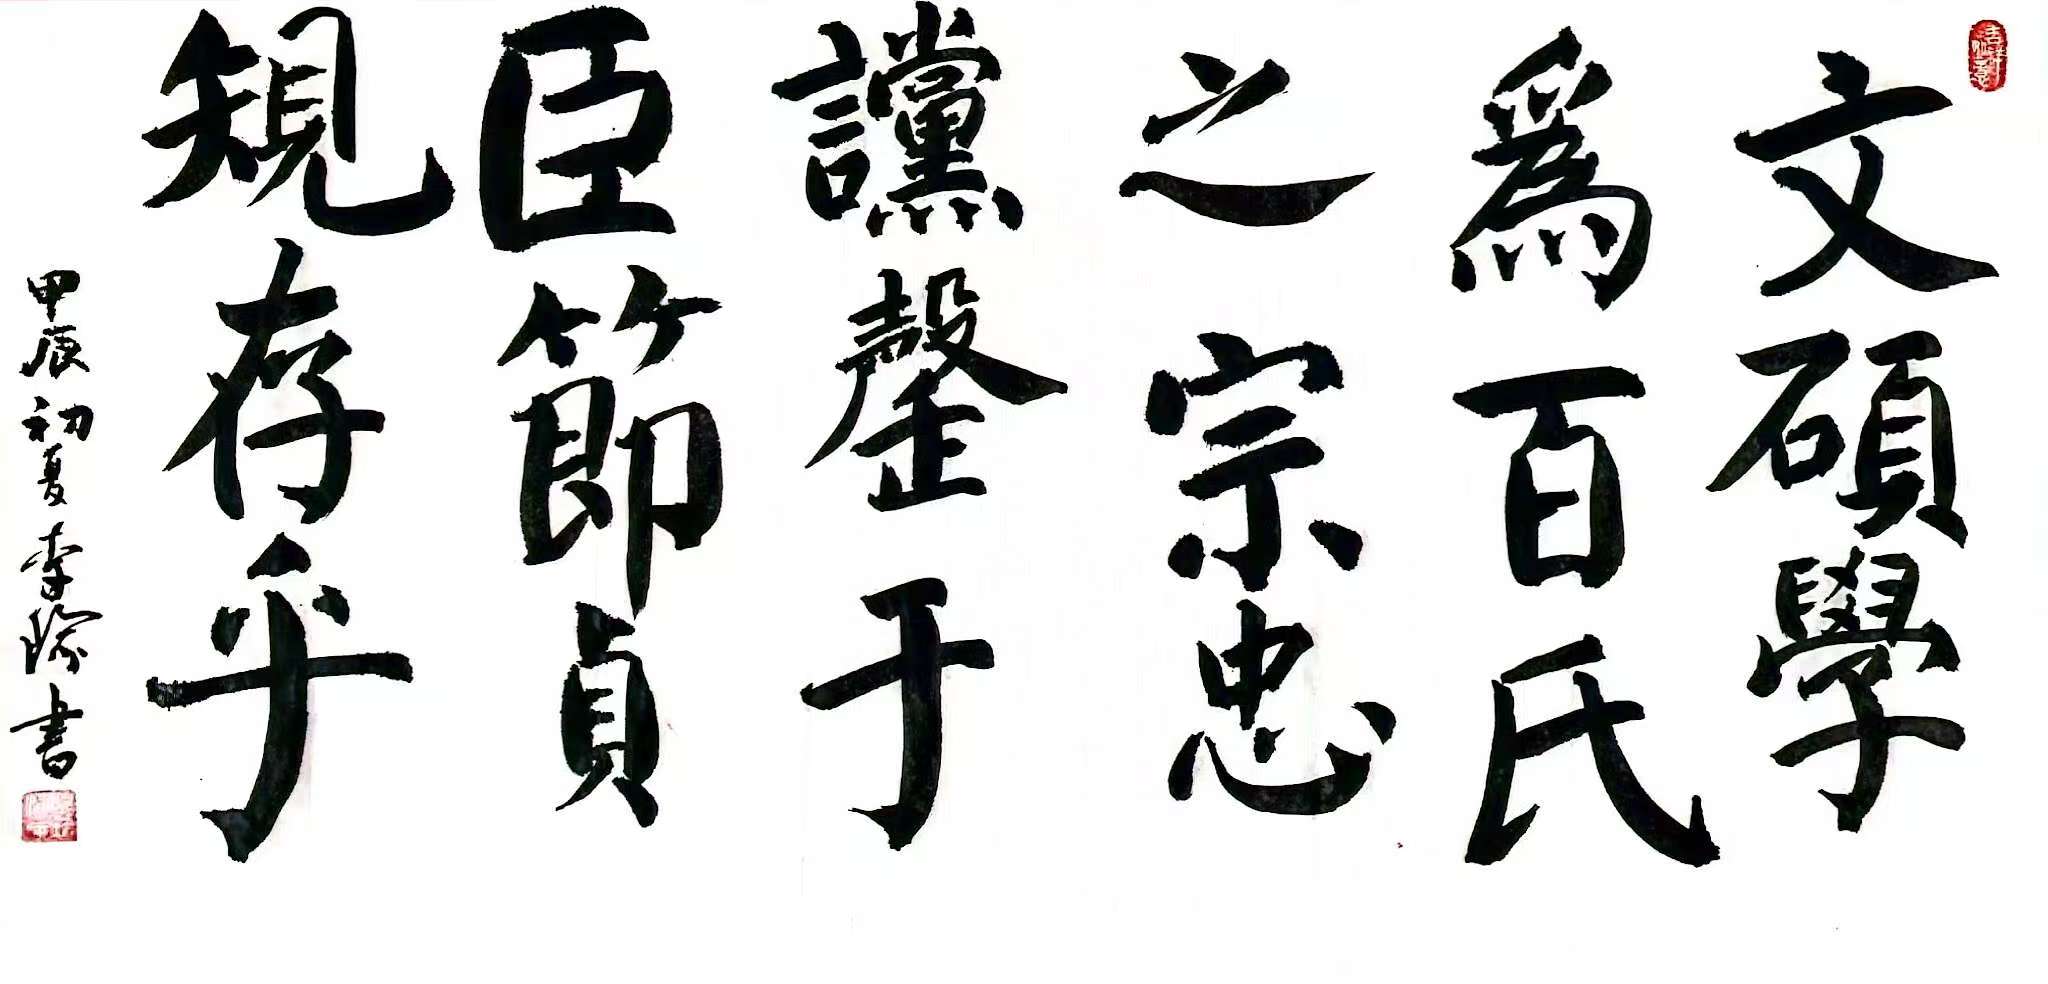 文碩學
爲百氏
之宗忠
讜罄于
臣節貞
規存乎
甲辰初夏李瑜書